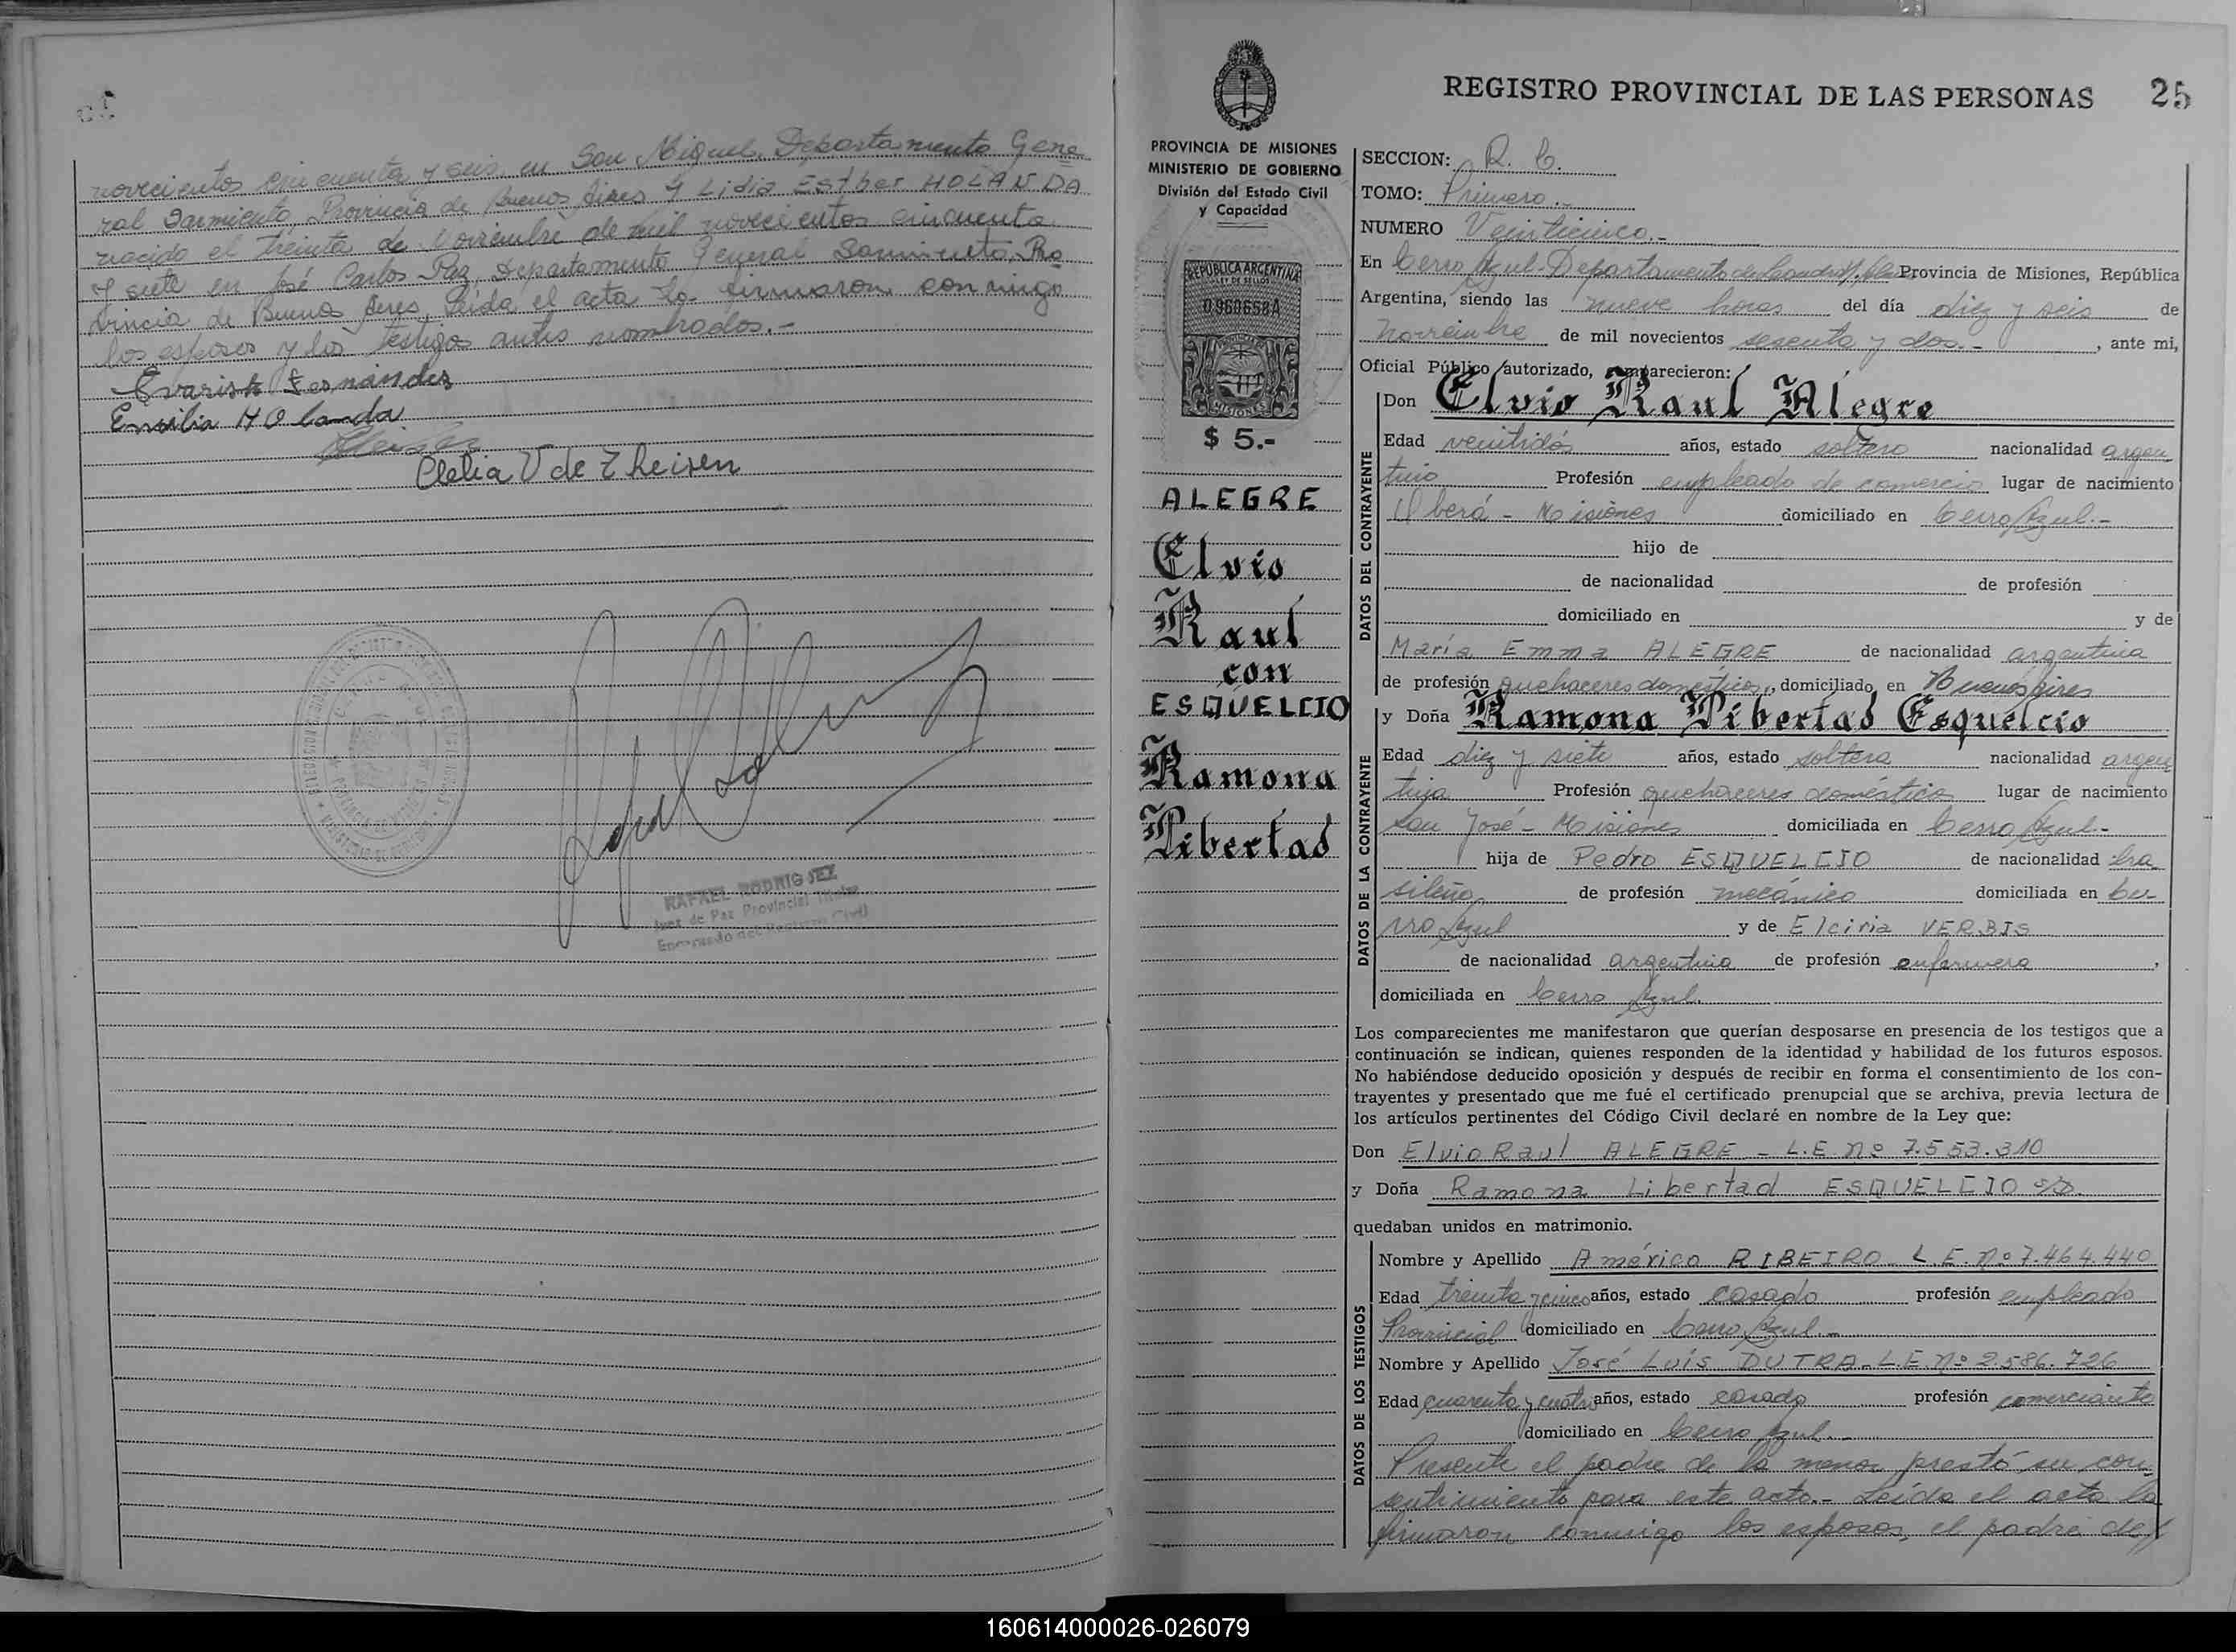 novecientos cincuenta y seis, en San Miguel, Departamento Gene
ral Sarmiento, Provincia de Buenos Aires y Lidia Esther HOLANDA
nacida el treinta de Noviembre de mil novecientos cincuenta
y siete en José Carlos Paz, Departamento General Sarmiento, Pro
vincia de Buenos Aires, Leida el acta la firmaron conmigo
los esposos y los testigos antes nombrados.-
Evaristo Fernández
Emilia HOlanda
Clelia V de Theisen
RAFAEL RODRIGUEZ
Juez de Paz Provincial Titular
Encargado del Registro Civil
REGISTRO PROVINCIAL DE LAS PERSONAS 25
PROVINCIA DE MISIONES
MINISTERIO DE GOBIERNO
División del Estado Civil
y Capacidad
REPUBLICA ARGENTINA
LEY DE SELLOS
0960658A
MISIONES
$ 5.-
ALEGRE
Elvio
Raul
con
ESQUELCIO
Ramona
Libertad
SECCION: R. C.
TOMO: Primero.-
NUMERO Veinticinco.-
En Cerro Azul-Departamento de Leandro N. Alem Provincia de Misiones, República
Argentina, siendo las nueve horas del día diez y seis de
noviembre de mil novecientos sesenta y dos.- , ante mi,
Oficial Público autorizado, comparecieron:
DATOS DEL CONTRAYENTE
Don Elvio Raul Alegre
Edad veintidós años, estado soltero nacionalidad argen
tino Profesión empleado de comercio lugar de nacimiento
Oberá - Misiones domiciliado en Cerro Azul.-
hijo de
de nacionalidad de profesión
domiciliado en y de
María Emma ALEGRE de nacionalidad argentina
de profesión quehaceres domésticos, domiciliado en Buenos Aires
DATOS DE LA CONTRAYENTE
y Doña Ramona Libertad Esquelcio
Edad diez y siete años, estado soltera nacionalidad argen
tina Profesión quehaceres domésticos lugar de nacimiento
San José - Misiones domiciliada en Cerro Azul.-
hija de Pedro ESQUELCIO de nacionalidad bra
sileño de profesión mecánico domiciliada en Ce-
rro Azul y de Elciria VERBIS
de nacionalidad argentina de profesión enfermera ,
domiciliada en Cerro Azul.
Los comparecientes me manifestaron que querían desposarse en presencia de los testigos que a
continuación se indican, quienes responden de la identidad y habilidad de los futuros esposos.
No habiéndose deducido oposición y después de recibir en forma el consentimiento de los con-
trayentes y presentado que me fué el certificado prenupcial que se archiva, previa lectura de
los artículos pertinentes del Código Civil declaré en nombre de la Ley que:
Don Elvio Raul ALEGRE - L.E. Nº 7.553.310
y Doña Ramona Libertad ESQUELCIO s/d.
quedaban unidos en matrimonio.
DATOS DE LOS TESTIGOS
Nombre y Apellido Américo RIBEIRO L.E. Nº 7.464.440
Edad treinta y cinco años, estado casado profesión empleado
Provincial domiciliado en Cerro Azul.-
Nombre y Apellido José Luis DUTRA - L.E. Nº 2.586.726
Edad cuarenta y cuatro años, estado casado profesión comerciante
domiciliado en Cerro Azul.-
Presente el padre de la menor prestó su con
sentimiento para este acto.- Leída el acta la
firmaron conmigo los esposos, el padre de//
160614000026-026079